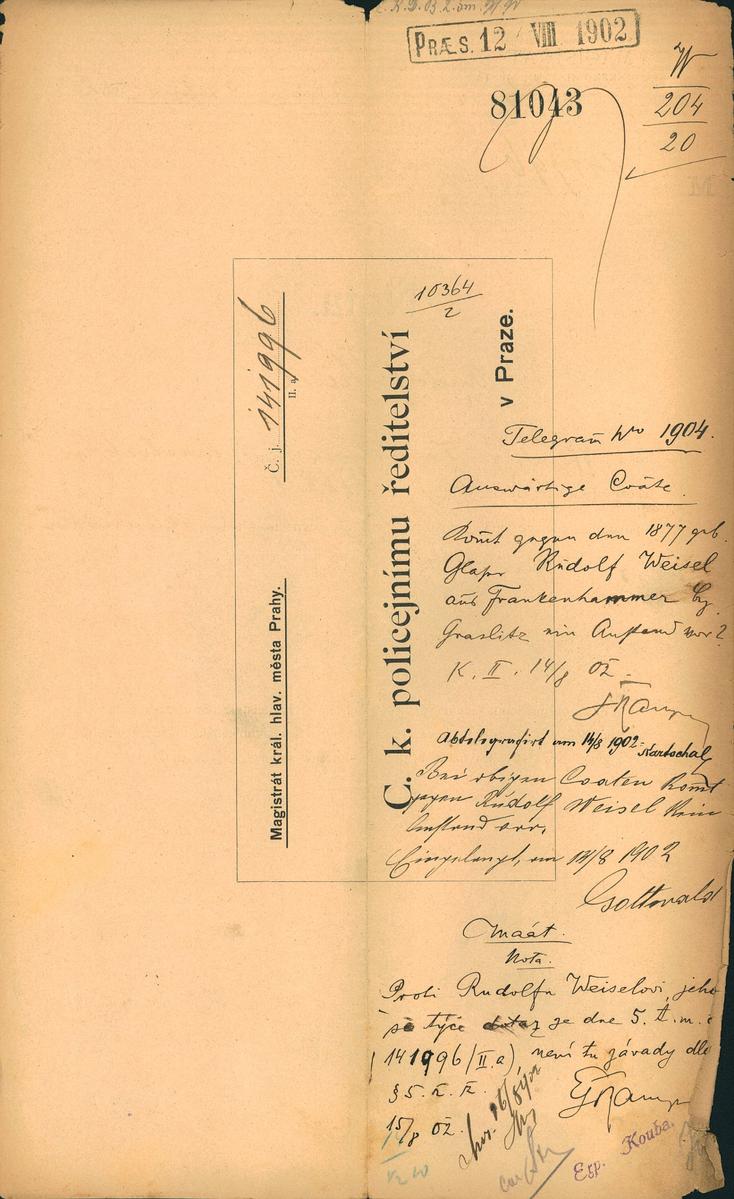 PRÆS. 12 VIII 1902
81043
W
204
20
10364
2
Č. j. 141996
II. a
Magistrát král. hlav. města Prahy.
C. k. policejnímu ředitelství
v Praze.
Telegram No 1904.
Auswärtige Coäte.
Komt gegen den 1877 geb.
Glaser Rudolf Weisel
aus Frankenhammer Bz.
Graslitz ein Anstand vor?
K. II. 14/8 02.
Abtelegrafirt am 14/8 1902
Bei obigen Coaten komt
gegen Rudolf Weisel kein
Anstand vor,
Eingelangt, am 14/8 1902
Gottwald
Maát.
Nota.
Proti Rudolfu Weiselovi, jehož
se týče dotaz ze dne 5. t. m. č
141996/II.a), není tu závady dle
§ 5. z. ž.
15/8 02.
Exp. Kouba.